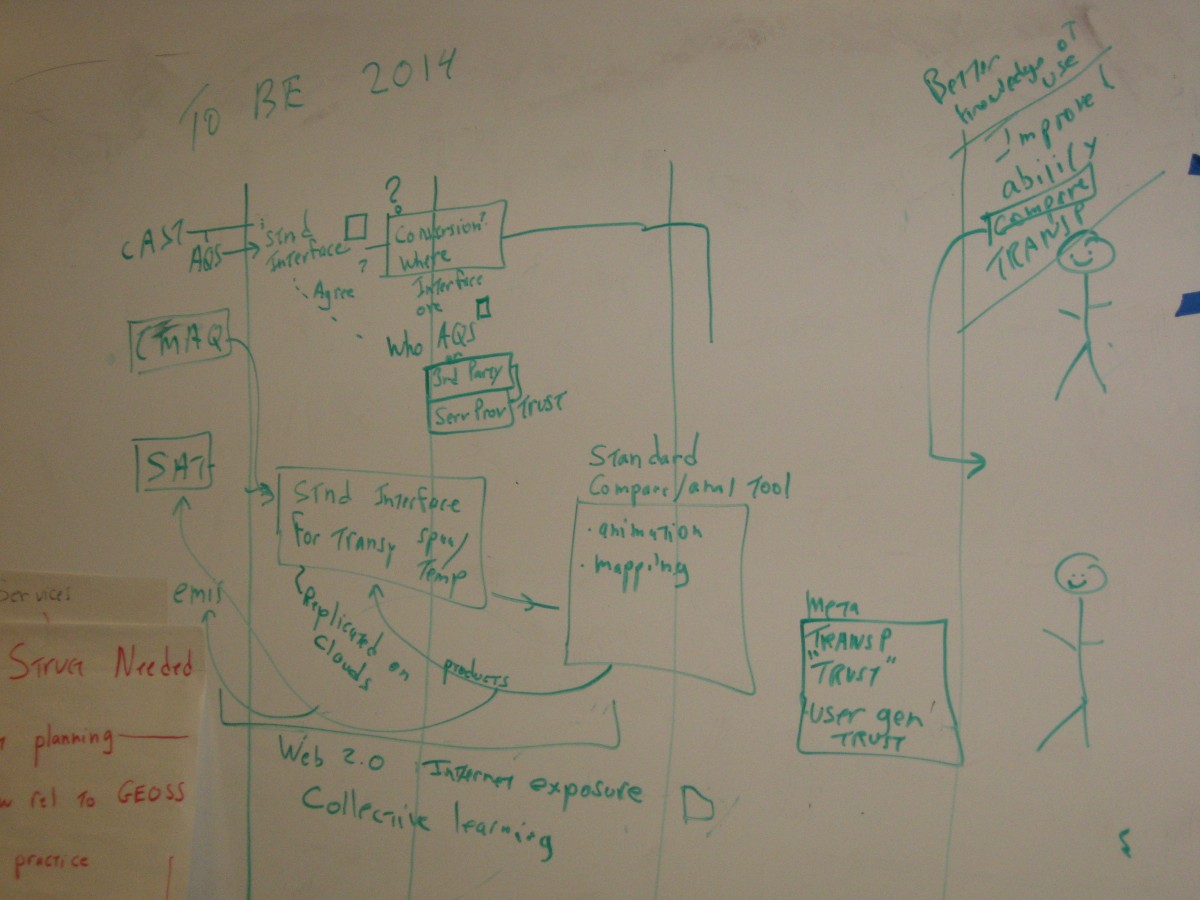 TO BE 2014
Better
knowledge of
use
Improve
ability
Compare
TRANSP
CAST
AQS
STnd
Interface
?
?
Conversion?
Where
Interface
are
Agree
Who AQS
or
3rd Party
Serv Prov
TRUST
CMAQ
SAT
emis
STnd Interface
For Transp spa/
Temp
Replicated on
Clouds
products
Standard
Compare/anal Tool
· animation
· mapping
META
"TRANSP
TRUST"
user gen'
TRUST
Web 2.0 Internet exposure
Collective learning
Services
STruct Needed
planning
rel to GEOSS
practice